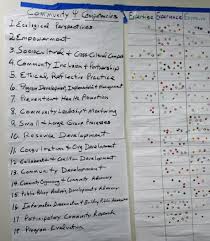 Community Ψ Competencies
Expertise Experience Exposure
1. Ecological Perspectives
2. Empowerment
3. Sociocultural & Cross-Cultural Competence
4. Community Inclusion & Partnership
5. Ethical, Reflective Practice
6. Program Development, Implementation & Management
7. Prevention & Health Promotion
8. Community Leadership & Mentoring
9. Small & Large Group Processes
10. Resource Development
11. Consultation & Org. Development
12. Collaboration & Coalition Development
13. Community Development
14. Community Organizing & Community Advocacy
15. Public Policy Analysis, Development & Advocacy
16. Information Dissemination & Building Public Awareness
17. Participatory Community Research
18. Program Evaluation